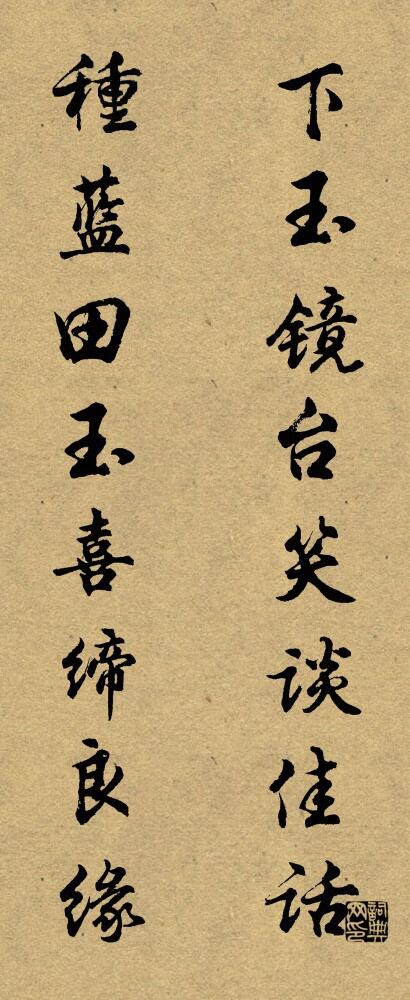 下玉镜台笑谈佳话
種蓝田玉喜缔良缘
詞典网印